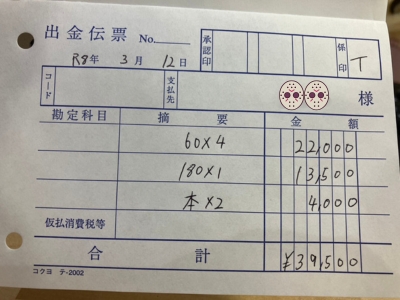 出金伝票 No.
承認印
係印 T
R8年 3月 12日
コード
支払先
様
勘定科目 摘要 金額
60×4 22,000
180×1 13,500
本×2 4,000
仮払消費税等
合計 ¥39,500
コクヨ テ-2002